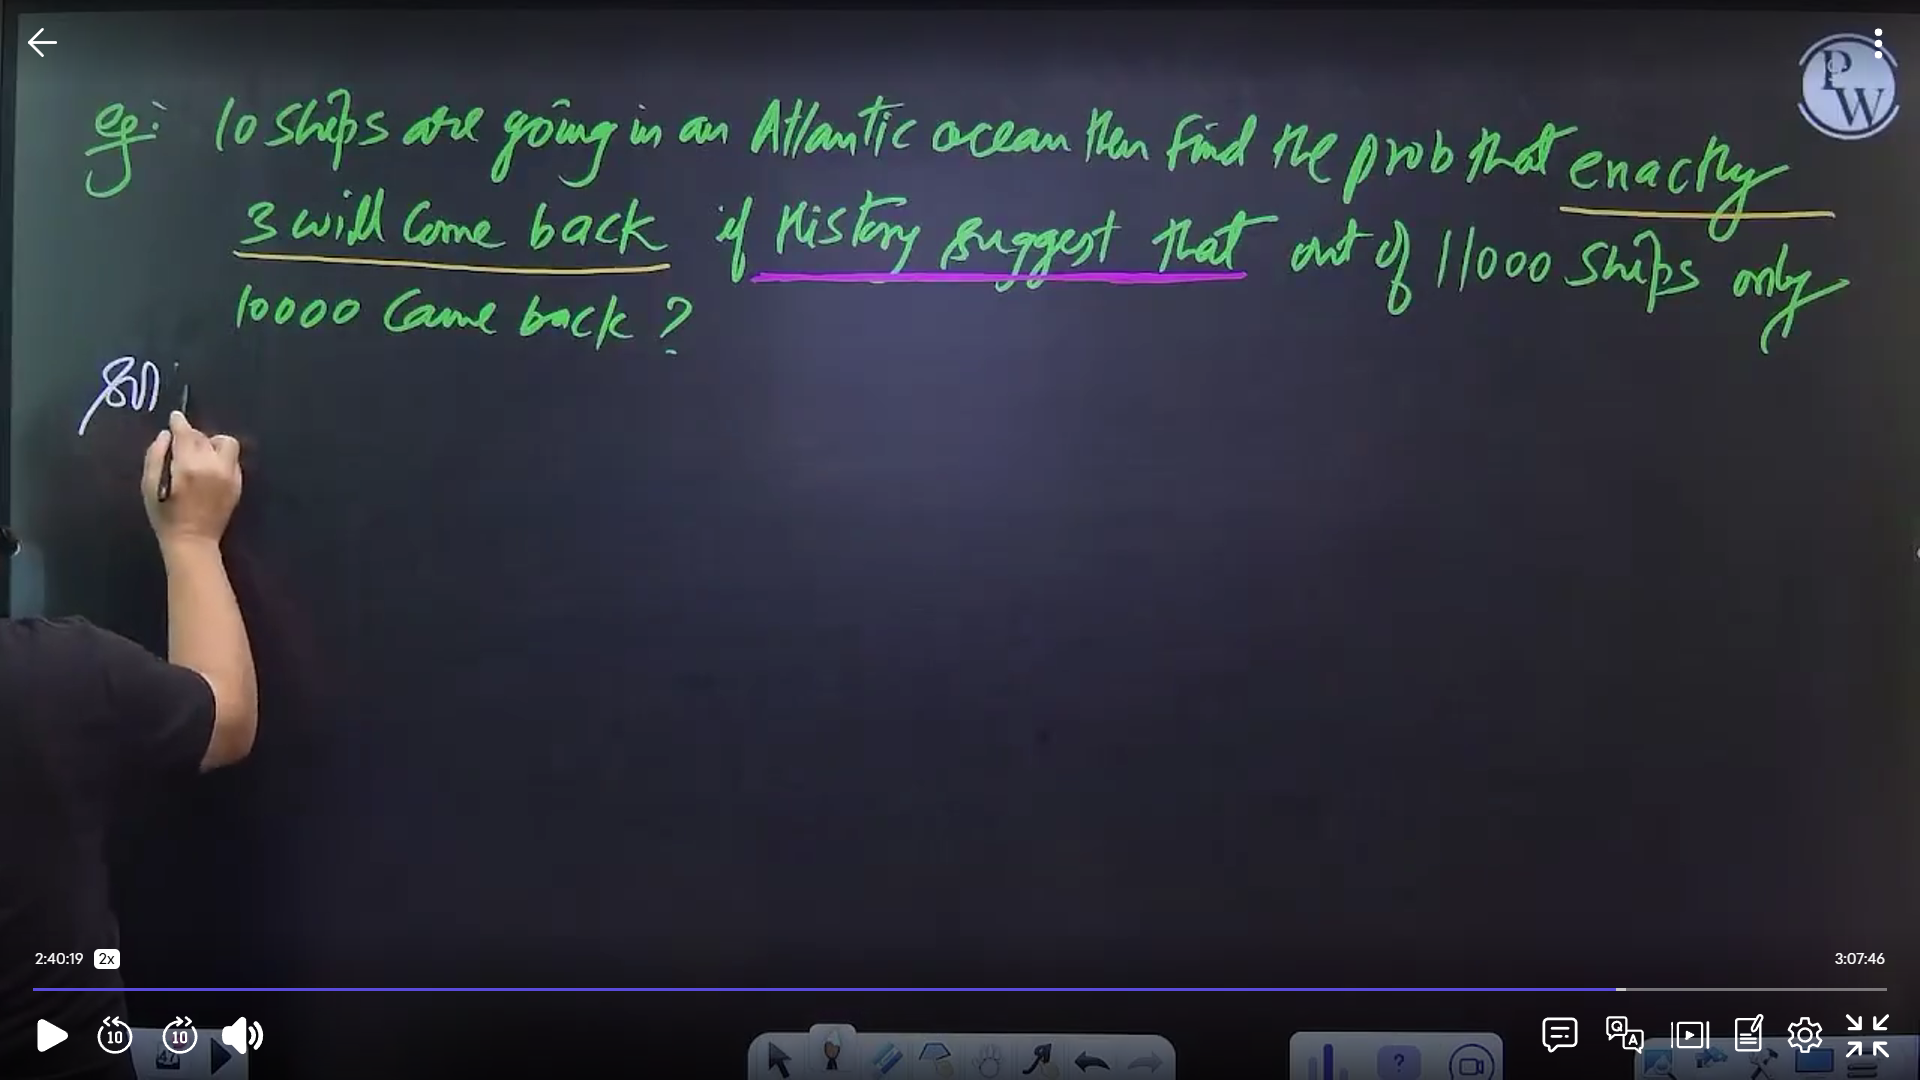 PW
eg: 10 ships are going in an Atlantic ocean then find the prob that enactly
3 will come back if History suggest that out of 11000 ships only
10000 came back ?
Sol:
2:40:19 2x
3:07:46
10 10
47
?